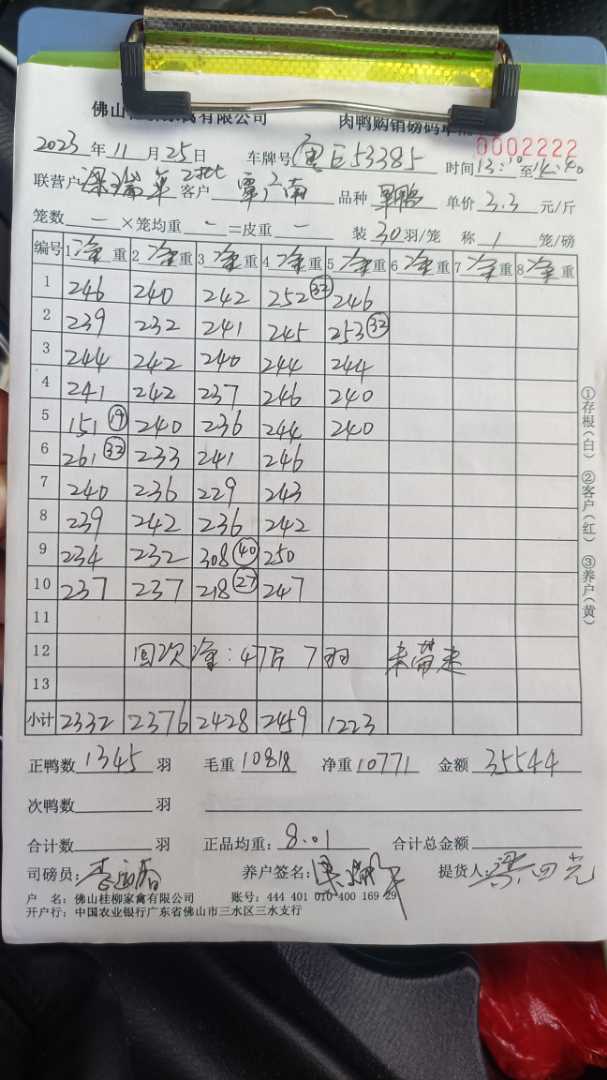 佛山 有限公司 肉鸭购销磅码单
0002222
2023年11月25日 车牌号 E53385 时间13:10至14:40
联营户 2批 客户 覃广南 品种 单价3.3元/斤
笼数 — ×笼均重 — =皮重 — 装30羽/笼 称1笼/磅
编号 1净重 2净重 3净重 4净重 5净重 6净重 7净重 8净重
1 246 240 242 252(33) 246
2 239 232 241 245 253(33)
3 244 242 240 244 244
4 241 242 237 246 240
5 151(19) 240 236 244 240
6 261(33) 233 241 246
7 240 236 229 243
8 239 242 236 242
9 234 232 308(40) 250
10 237 237 218(27) 247
11
12 回次净:47斤 7羽 未带走
13
小计 2332 2376 2428 2459 1223
正鸭数1345羽 毛重10818 净重10771 金额35544
次鸭数 羽
合计数 羽 正品均重:8.01 合计总金额
司磅员: 养户签名: 提货人:梁四光
户 名:佛山桂柳家禽有限公司 账号:444 401 010 400 169 29
开户行:中国农业银行广东省佛山市三水区三水支行
①存根(白) ②客户(红) ③养户(黄)